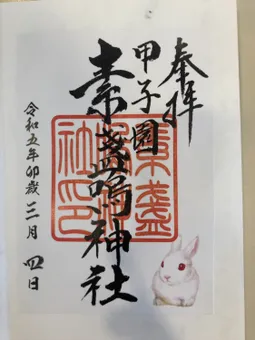 奉拝
甲子園
素盞嗚神社
令和五年卯歳三月四日
素盞
嗚神
社印